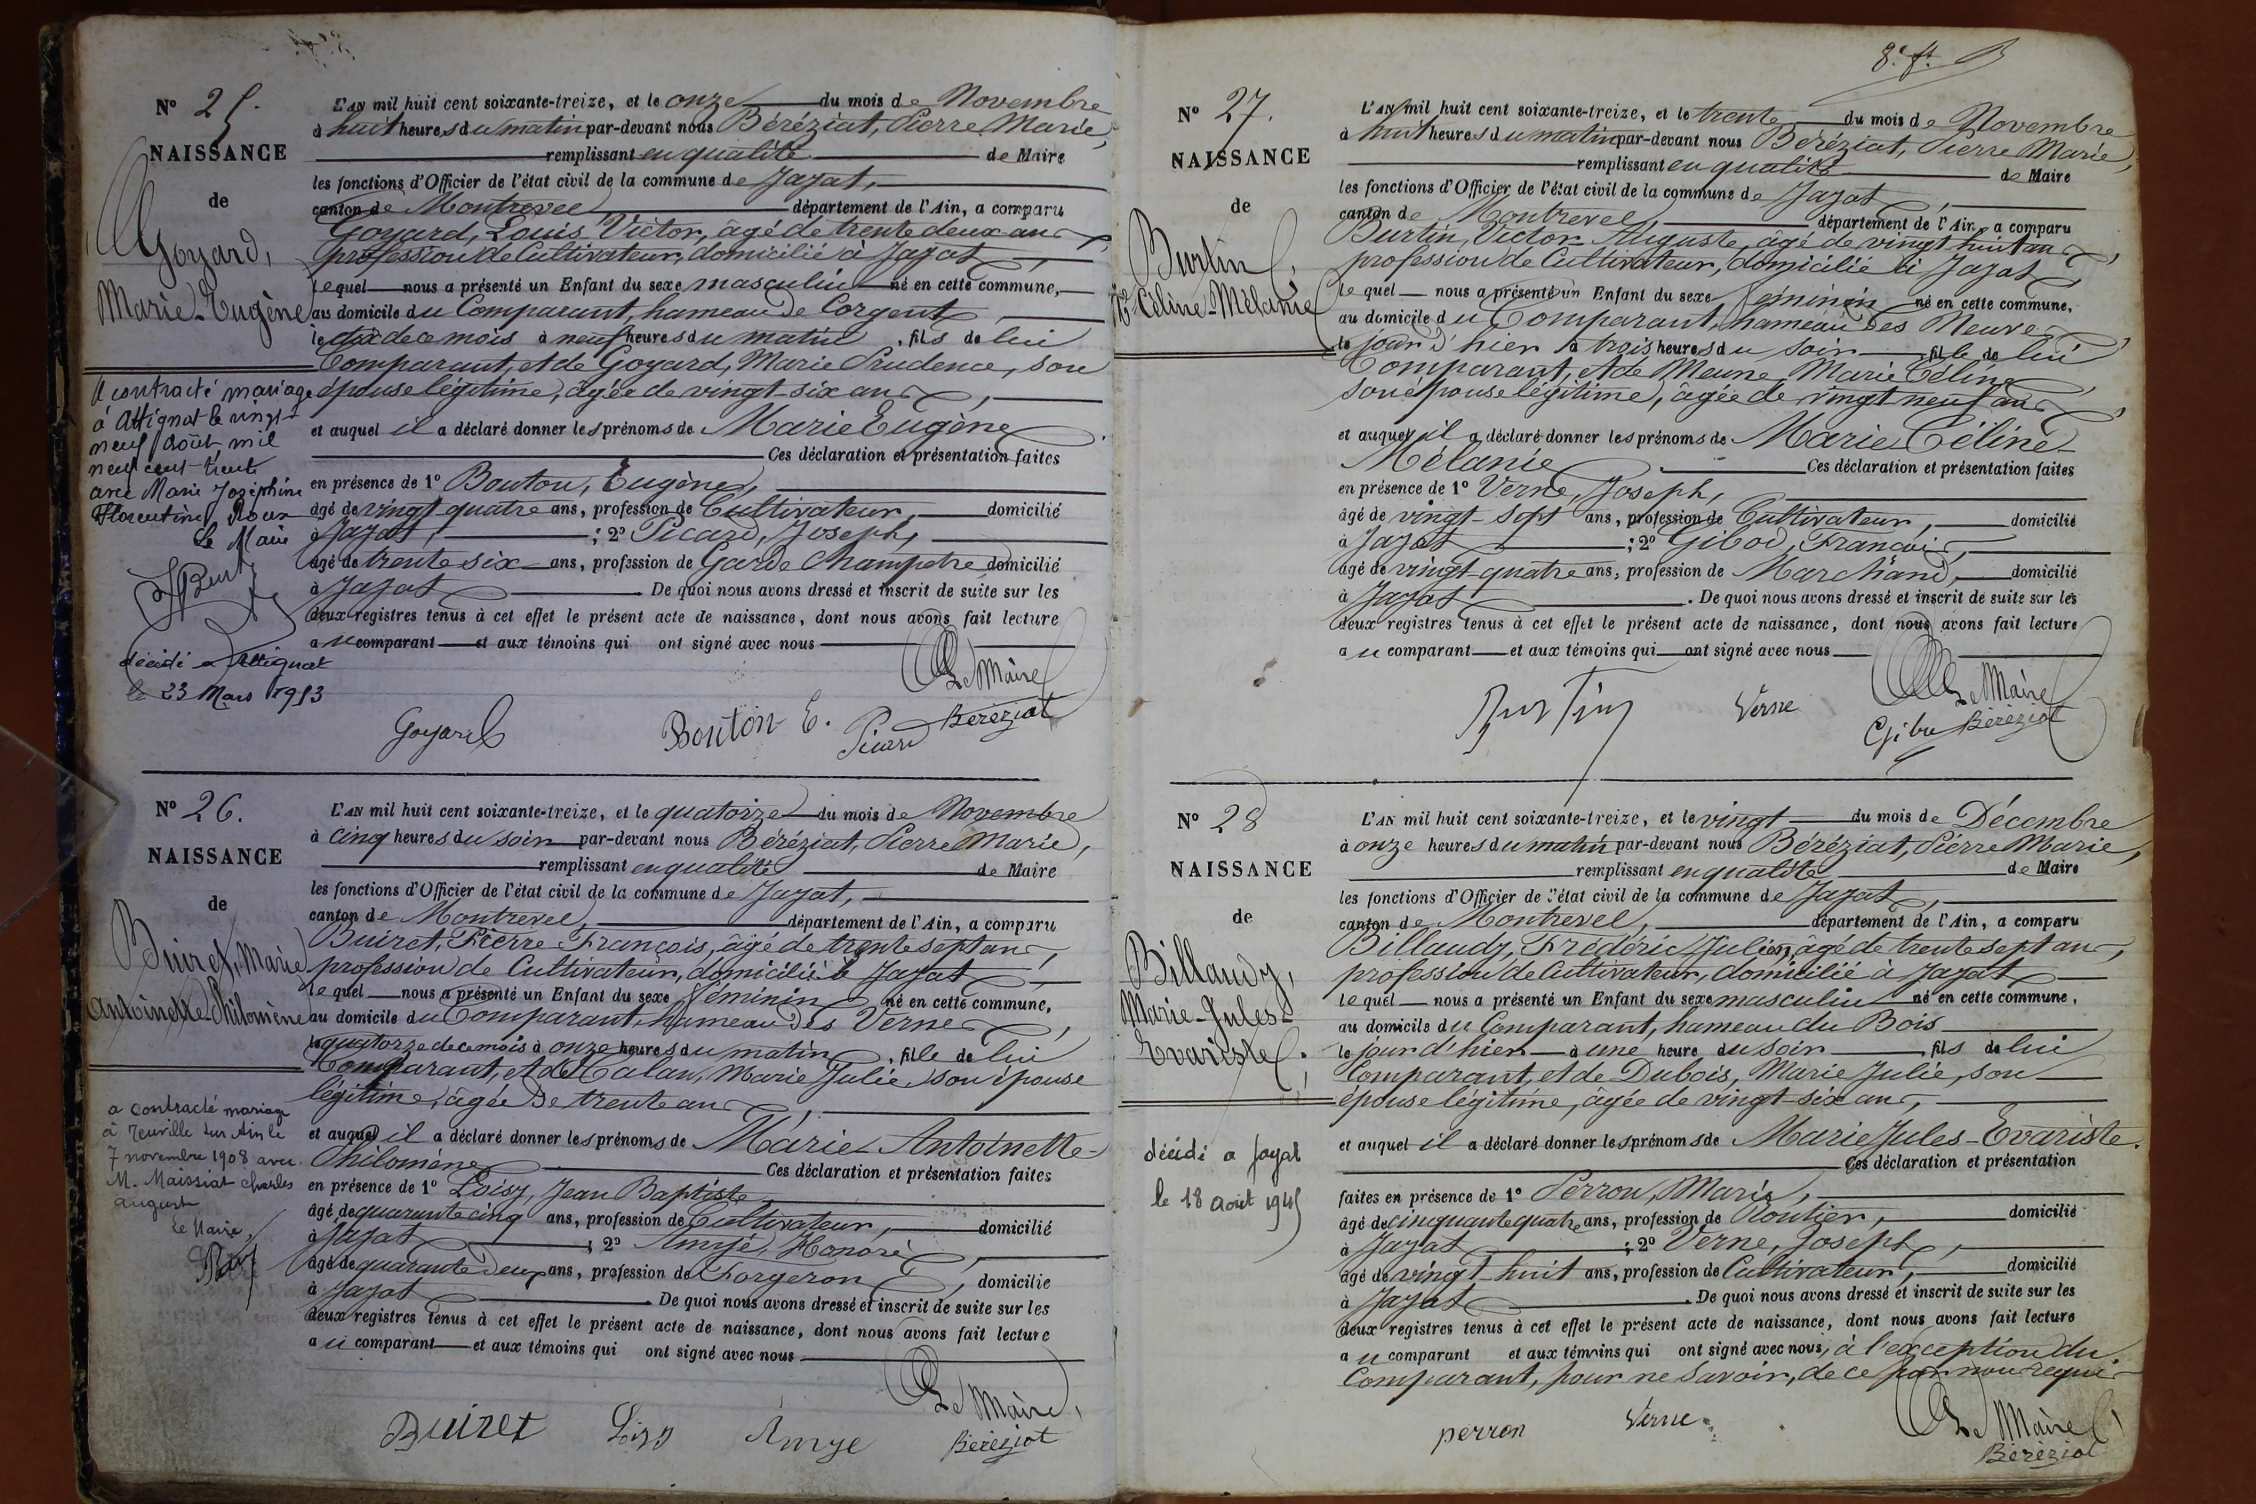 N° 25.
NAISSANCE
de
Goyard,
Marie-Eugène
A contracté mariage
à Attignat le vingt-
neuf août mil
neuf cent trente
avec Marie Joséphine
Florentine Roux
Le Maire
décédé à Attignat
le 23 Mars 1953
L'AN mil huit cent soixante-treize, et le onze du mois de Novembre
à huit heures du matin par-devant nous Béréziat, Pierre Marie,
remplissant en qualité de Maire
les fonctions d'Officier de l'état civil de la commune de Jayat,
canton de Montrevel département de l'Ain, a comparu
Goyard, Louis Victor, âgé de trente deux ans,
profession de Cultivateur, domicilié à Jayat,
lequel nous a présenté un Enfant du sexe masculin né en cette commune,
au domicile du Comparant, hameau de Corgent,
le dix de ce mois à neuf heures du matin, fils de lui
Comparant, et de Goyard, Marie Prudence, son
épouse légitime, âgée de vingt-six ans,
et auquel il a déclaré donner les prénoms de Marie Eugène
Ces déclaration et présentation faites
en présence de 1° Bouton, Eugène,
âgé de vingt-quatre ans, profession de Cultivateur, domicilié
à Jayat, ; 2° Picard, Joseph,
âgé de trente six ans, profession de Garde Champetre, domicilié
à Jayat. De quoi nous avons dressé et inscrit de suite sur les
deux registres tenus à cet effet le présent acte de naissance, dont nous avons fait lecture
au comparant et aux témoins qui ont signé avec nous
Le Maire
Goyard Bouton E. Picard Béréziat
N° 26.
NAISSANCE
de
Buiret, Marie
Antoinette-Philomène
a contracté mariage
à Neuville sur Ain le
7 novembre 1908 avec
M. Maissiat Charles
August
Le Maire,
L'AN mil huit cent soixante-treize, et le quatorze du mois de Novembre
à cinq heures du soir par-devant nous Béréziat, Pierre Marie,
remplissant en qualité de Maire
les fonctions d'Officier de l'état civil de la commune de Jayat,
canton de Montrevel, département de l'Ain, a comparu
Buiret, Pierre François, âgé de trente sept ans,
profession de Cultivateur, domicilié à Jayat,
lequel nous a présenté un Enfant du sexe féminin né en cette commune,
au domicile du Comparant, hameau des Vernes,
le quatorze de ce mois à onze heures du matin, fille de lui
Comparant, et de Halan, Marie Julie, son épouse
légitime, âgée de trente ans,
et auquel il a déclaré donner les prénoms de Marie Antoinette-
Philomène Ces déclaration et présentation faites
en présence de 1° Loisy, Jean Baptiste
âgé de quarante cinq ans, profession de Cultivateur, domicilié
à Jayat ; 2° Amyé, Honoré,
âgé de quarante deux ans, profession de Forgeron, domicilié
à Jayat. De quoi nous avons dressé et inscrit de suite sur les
deux registres tenus à cet effet le présent acte de naissance, dont nous avons fait lecture
au comparant et aux témoins qui ont signé avec nous
Le Maire,
Buiret Loisy Amye Béréziat
N° 27.
NAISSANCE
de
Burtin,
Mie Céline-Mélanie
L'AN mil huit cent soixante-treize, et le trente du mois de Novembre
à huit heures du matin par-devant nous Béréziat, Pierre Marie,
remplissant en qualité de Maire
les fonctions d'Officier de l'état civil de la commune de Jayat,
canton de Montrevel, département de l'Ain, a comparu
Burtin, Victor Auguste, âgé de vingt huit ans,
profession de Cultivateur, domicilié à Jayat,
lequel nous a présenté un Enfant du sexe féminin né en cette commune,
au domicile du Comparant, hameau des Meure
le jour d'hier à trois heures du soir, fille de lui
Comparant, et de Meune, Marie Céline,
son épouse légitime, âgée de vingt neuf ans,
et auquel il a déclaré donner les prénoms de Marie Céline-
Mélanie Ces déclaration et présentation faites
en présence de 1° Verne, Joseph,
âgé de vingt-sept ans, profession de Cultivateur, domicilié
à Jayat ; 2° Gibod, François,
âgé de vingt-quatre ans, profession de Marchand, domicilié
à Jayat. De quoi nous avons dressé et inscrit de suite sur les
deux registres tenus à cet effet le présent acte de naissance, dont nous avons fait lecture
au comparant et aux témoins qui ont signé avec nous
Le Maire
Burtin Verne Gibod Béréziat
N° 28
NAISSANCE
de
Billaudy,
Marie-Jules-
Evariste.
décédé à Jayat
le 18 Août 1945
L'AN mil huit cent soixante-treize, et le vingt du mois de Décembre
à onze heures du matin par-devant nous Béréziat, Pierre Marie,
remplissant en qualité de Maire
les fonctions d'Officier de l'état civil de la commune de Jayat,
canton de Montrevel, département de l'Ain, a comparu
Billaudy, Frédéric Julien, âgé de trente sept ans,
profession de Cultivateur, domicilié à Jayat
lequel nous a présenté un Enfant du sexe masculin né en cette commune,
au domicile du Comparant, hameau du Bois
le jour d'hier à une heure du soir, fils de lui
Comparant, et de Dubois, Marie Julie, son
épouse légitime, âgée de vingt-six ans,
et auquel il a déclaré donner les prénoms de Marie Jules-Evariste.
Ces déclaration et présentation
faites en présence de 1° Perron, Marie,
âgé de cinquante quatre ans, profession de Routier, domicilié
à Jayat ; 2° Verne, Joseph,
âgé de vingt-huit ans, profession de Cultivateur, domicilié
à Jayat. De quoi nous avons dressé et inscrit de suite sur les
deux registres tenus à cet effet le présent acte de naissance, dont nous avons fait lecture
au comparant et aux témoins qui ont signé avec nous, à l'exception du
Comparant, pour ne savoir, de ce par nous requis
Le Maire
perron Verne Béréziat